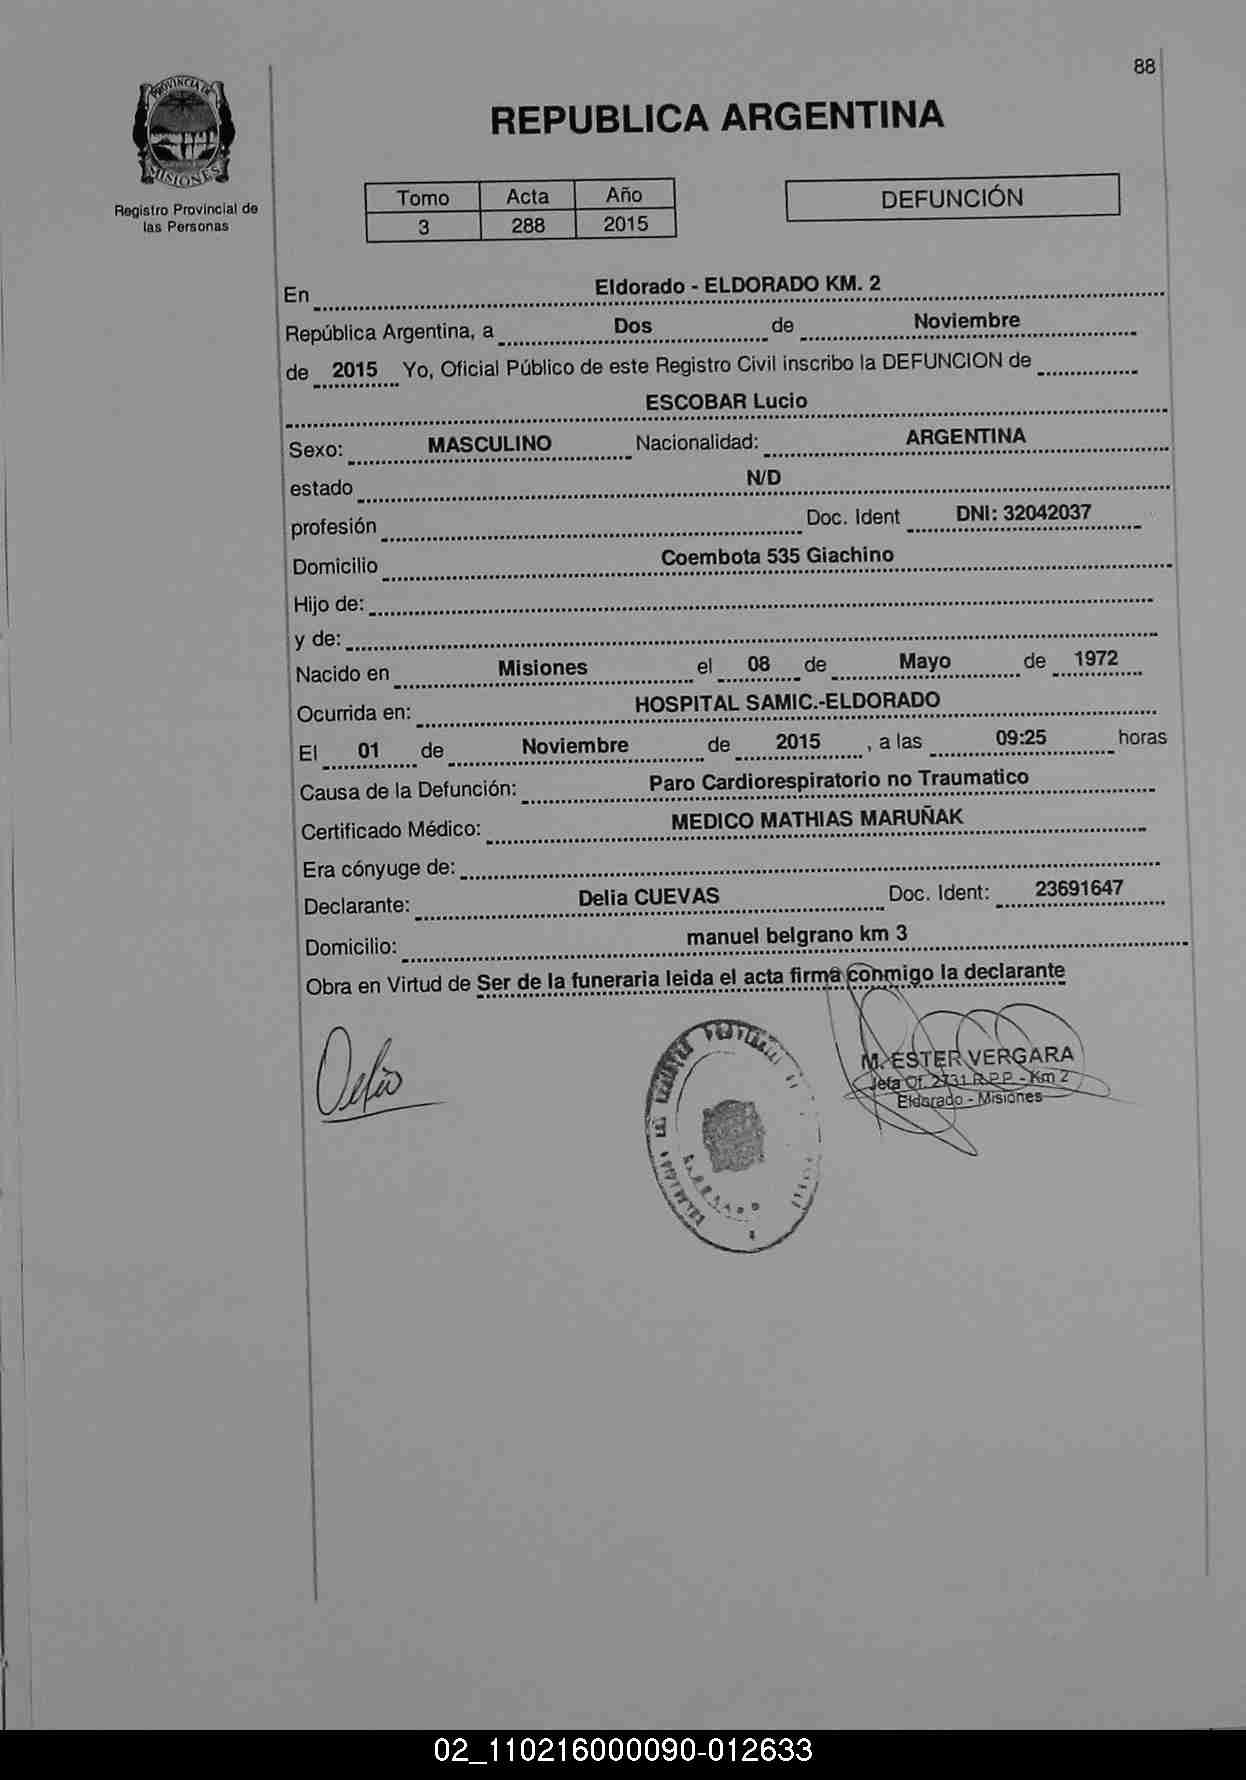 88
PROVINCIA DE
MISIONES
Registro Provincial de
las Personas
REPUBLICA ARGENTINA
Tomo Acta Año
3 288 2015
DEFUNCIÓN
En Eldorado - ELDORADO KM. 2
República Argentina, a Dos de Noviembre
de 2015 Yo, Oficial Público de este Registro Civil inscribo la DEFUNCION de
ESCOBAR Lucio
Sexo: MASCULINO Nacionalidad: ARGENTINA
estado N/D
profesión Doc. Ident DNI: 32042037
Domicilio Coembota 535 Giachino
Hijo de:
y de:
Nacido en Misiones el 08 de Mayo de 1972
Ocurrida en: HOSPITAL SAMIC.-ELDORADO
El 01 de Noviembre de 2015 , a las 09:25 horas
Causa de la Defunción: Paro Cardiorespiratorio no Traumatico
Certificado Médico: MEDICO MATHIAS MARUÑAK
Era cónyuge de:
Declarante: Delia CUEVAS Doc. Ident: 23691647
Domicilio: manuel belgrano km 3
Obra en Virtud de Ser de la funeraria leida el acta firma conmigo la declarante
Delia
M. ESTER VERGARA
Jefa Of. 2731 R.P.P. - Km 2
Eldorado - Misiones
02_110216000090-012633